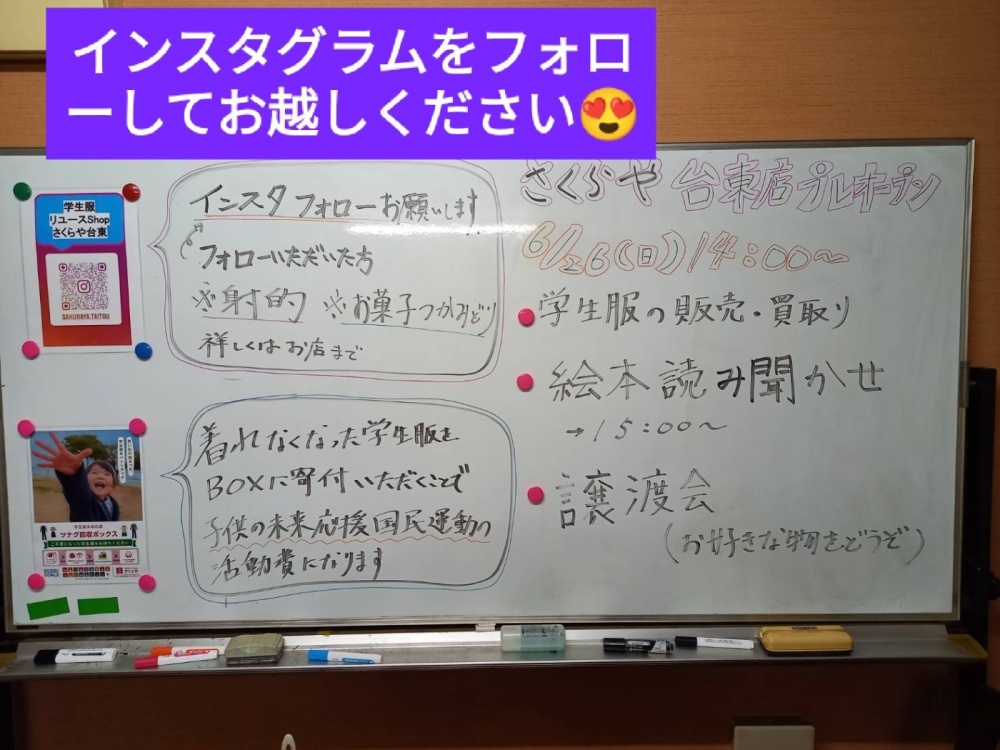 インスタグラムをフォロ
ーしてお越しください😍
学生服
リユースShop
さくらや台東
SAKURAYA.TAITOU
インスタ フォローお願いします
フォローいただいた方
※射的 ※お菓子つかみどり
詳しくはお店まで
ツナグ回収ボックス
着れなくなった学生服を
BOXに寄付いただくことで
子供の未来応援国民運動の
活動費になります
さくらや 台東店 プレオープン
6/26(日) 14:00〜
学生服の販売・買取り
絵本読み聞かせ
→15:00〜
譲渡会
(お好きな物をどうぞ)